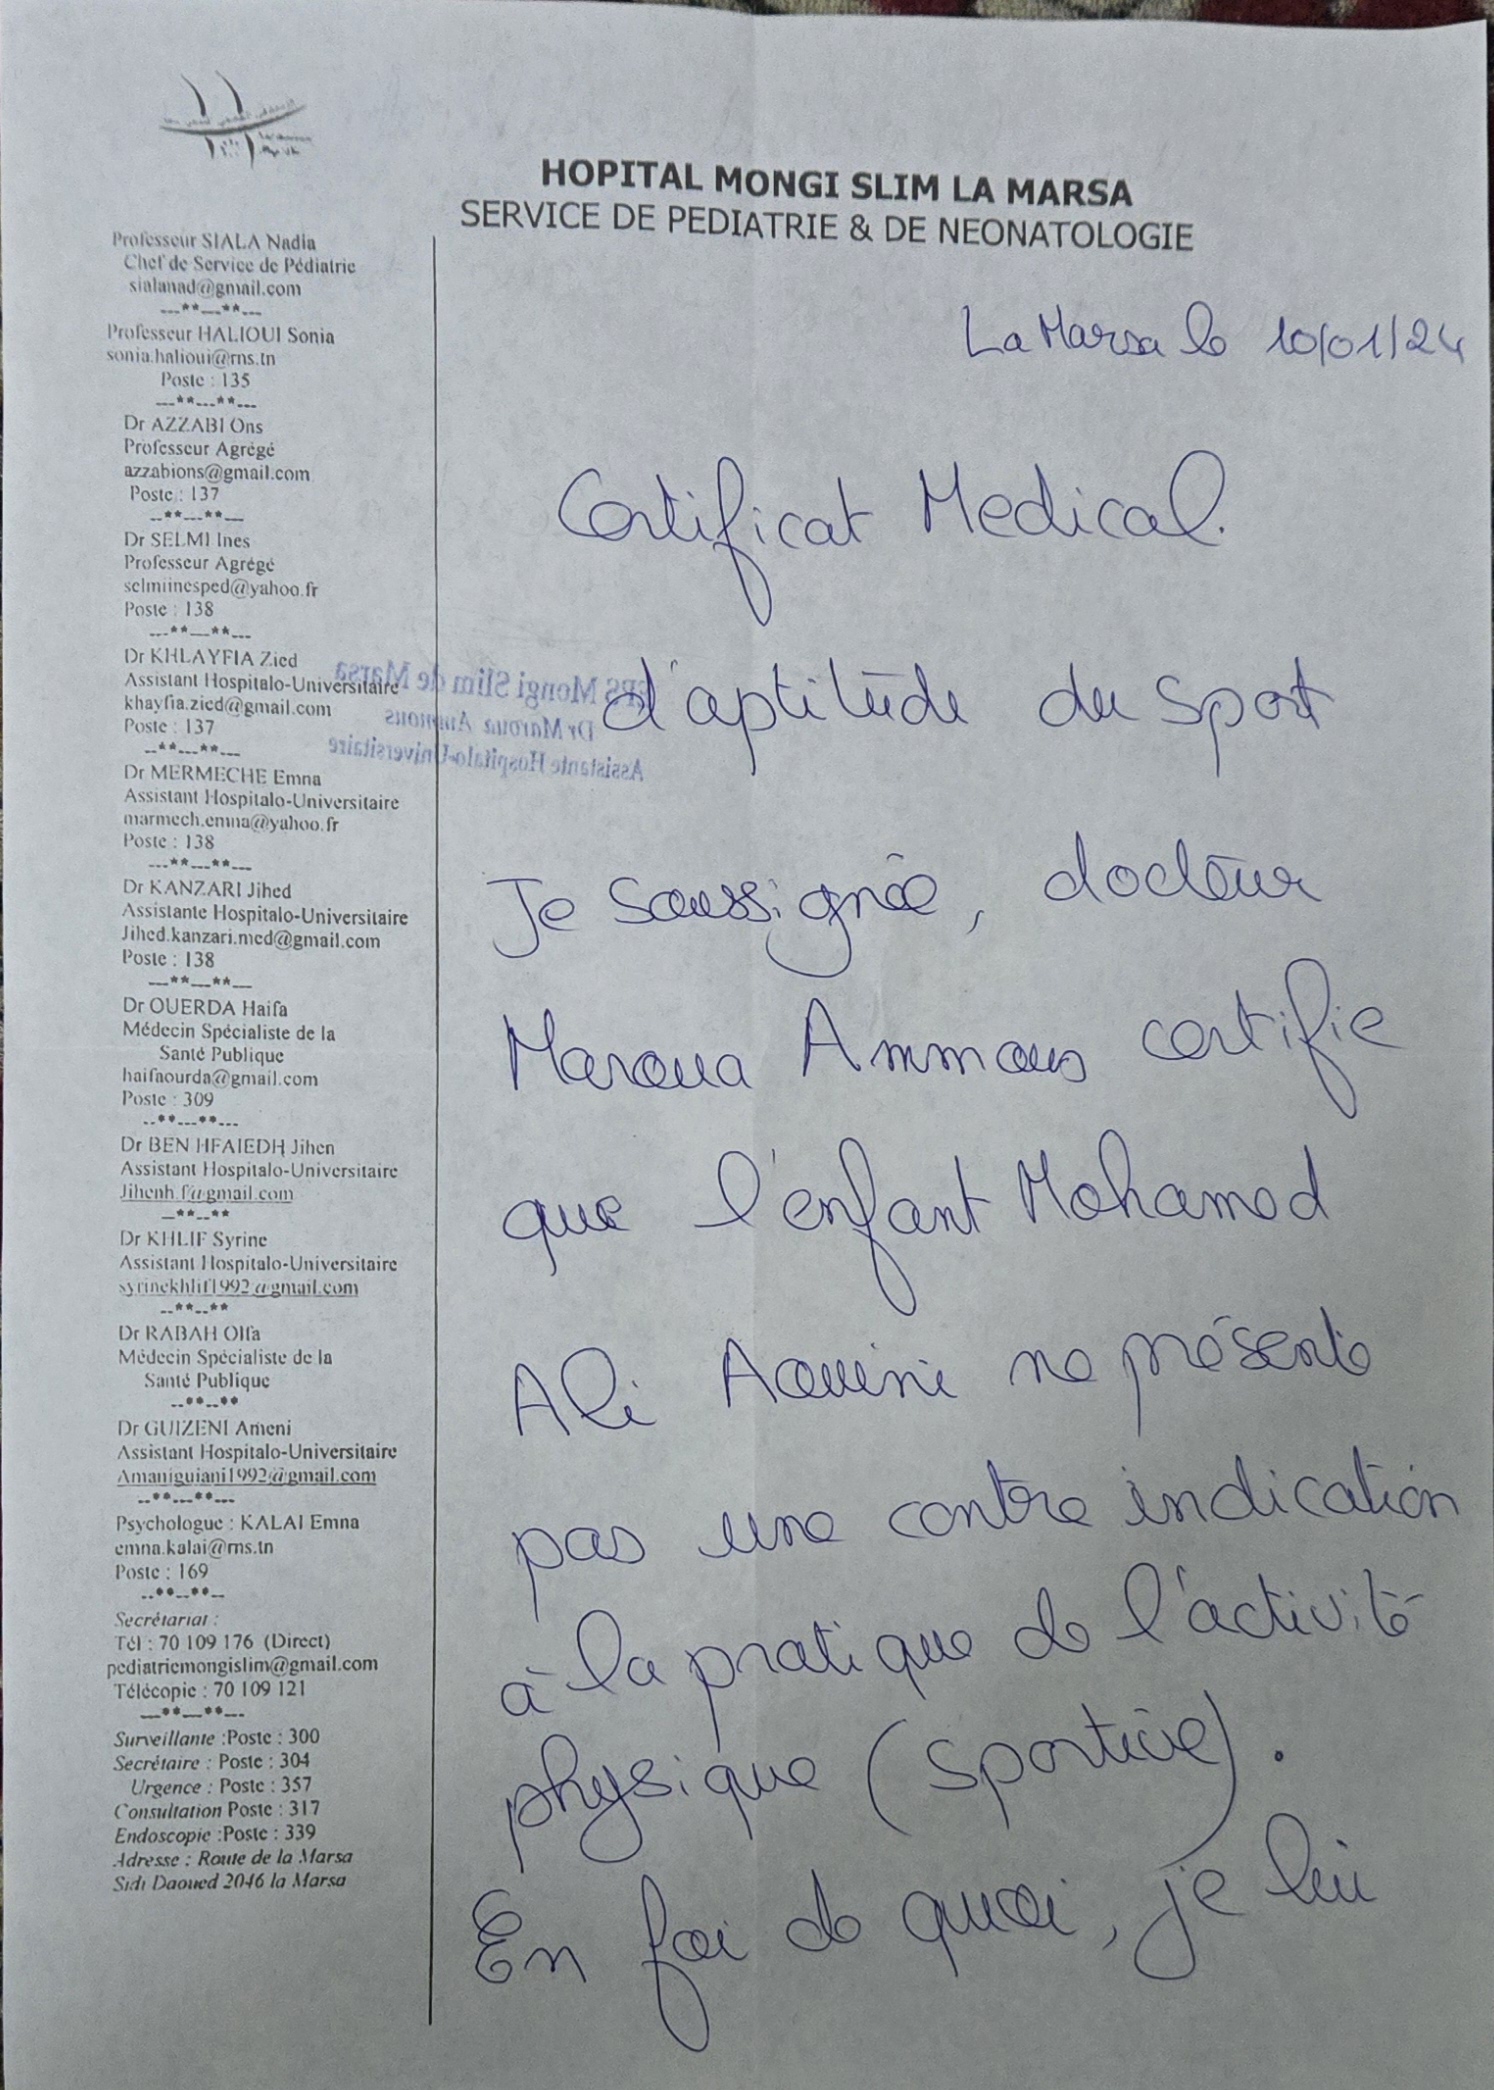 HOPITAL MONGI SLIM LA MARSA
SERVICE DE PEDIATRIE & DE NEONATOLOGIE
Professeur SIALA Nadia
Chef de Service de Pédiatrie
sialanad@gmail.com
---**---**---
Professeur HALIOUI Sonia
sonia.halioui@rns.tn
Poste : 135
---**---**---
Dr AZZABI Ons
Professeur Agrégé
azzabions@gmail.com
Poste : 137
--**---**---
Dr SELMI Ines
Professeur Agrégé
selmiinesped@yahoo.fr
Poste : 138
---**---**---
Dr KHLAYFIA Zied
Assistant Hospitalo-Universitaire
khayfia.zied@gmail.com
Poste : 137
--**---**---
Dr MERMECHE Emna
Assistant Hospitalo-Universitaire
marmech.emna@yahoo.fr
Poste : 138
---**---**---
Dr KANZARI Jihed
Assistante Hospitalo-Universitaire
Jihed.kanzari.med@gmail.com
Poste : 138
---**---**---
Dr OUERDA Haifa
Médecin Spécialiste de la
Santé Publique
haifaourda@gmail.com
Poste : 309
--**---**---
Dr BEN HFAIEDH Jihen
Assistant Hospitalo-Universitaire
Jihenh.f@gmail.com
--**--**
Dr KHLIF Syrine
Assistant Hospitalo-Universitaire
syrinekhlif1992@gmail.com
--**--**
Dr RABAH Olfa
Médecin Spécialiste de la
Santé Publique
--**--**
Dr GUIZENI Ameni
Assistant Hospitalo-Universitaire
Amaniguiani1992@gmail.com
--**---**---
Psychologue : KALAI Emna
emna.kalai@rns.tn
Poste : 169
--**--**--
Secrétariat :
Tél : 70 109 176 (Direct)
pediatriemongislim@gmail.com
Télécopie : 70 109 121
---**---**---
Surveillante :Poste : 300
Secrétaire : Poste : 304
Urgence : Poste : 357
Consultation Poste : 317
Endoscopie :Poste : 339
Adresse : Route de la Marsa
Sidi Daoued 2046 la Marsa
La Marsa le 10/01/24
Certificat Medical.
d'aptitude du sport
EPS Mongi Slim de Marsa
Dr Maroua Ammous
Assistante Hospitalo-Universitaire
Je soussignée, docteur
Maroua Ammous certifie
que l'enfant Mohamed
Ali Aouini ne présente
pas une contre indication
à la pratique de l'activité
physique (sportive).
En foi de quoi, je lui